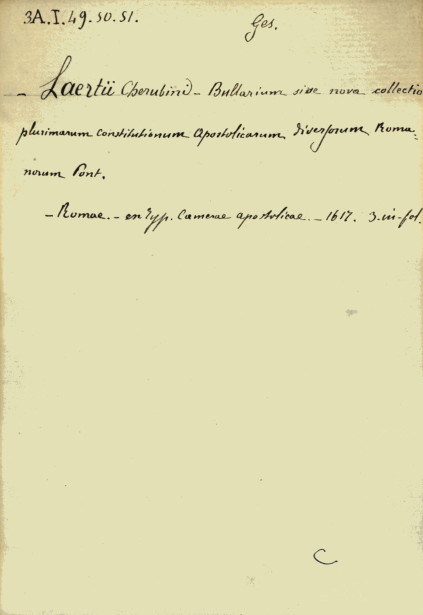 3A.I.49.50.51.
Ges.
- Laertii Cherubini - Bullarium sive nova collectio
plurimarum constitutionum Apostolicarum diversorum Roma=
norum Pont.
- Romae. - ex Typ. Camerae apostolicae. - 1617. 3. in-fol.
C